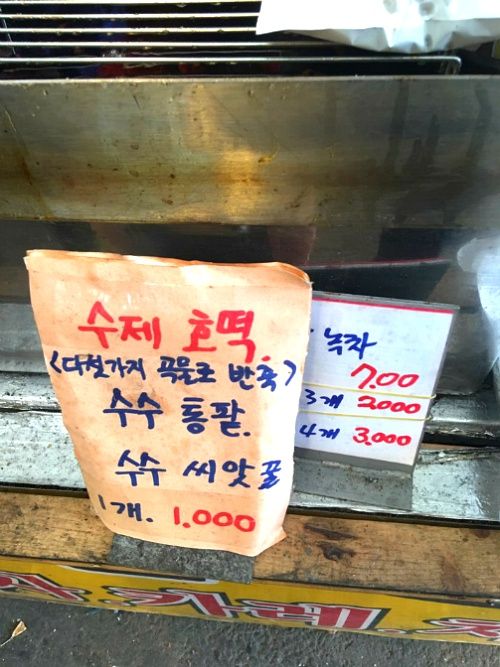 수제 호떡
<다섯가지 곡물로 반죽>
수수 통팥.
수수 씨앗꿀
1개. 1.000
녹차
700
3개 2000
4개 3.000
카레